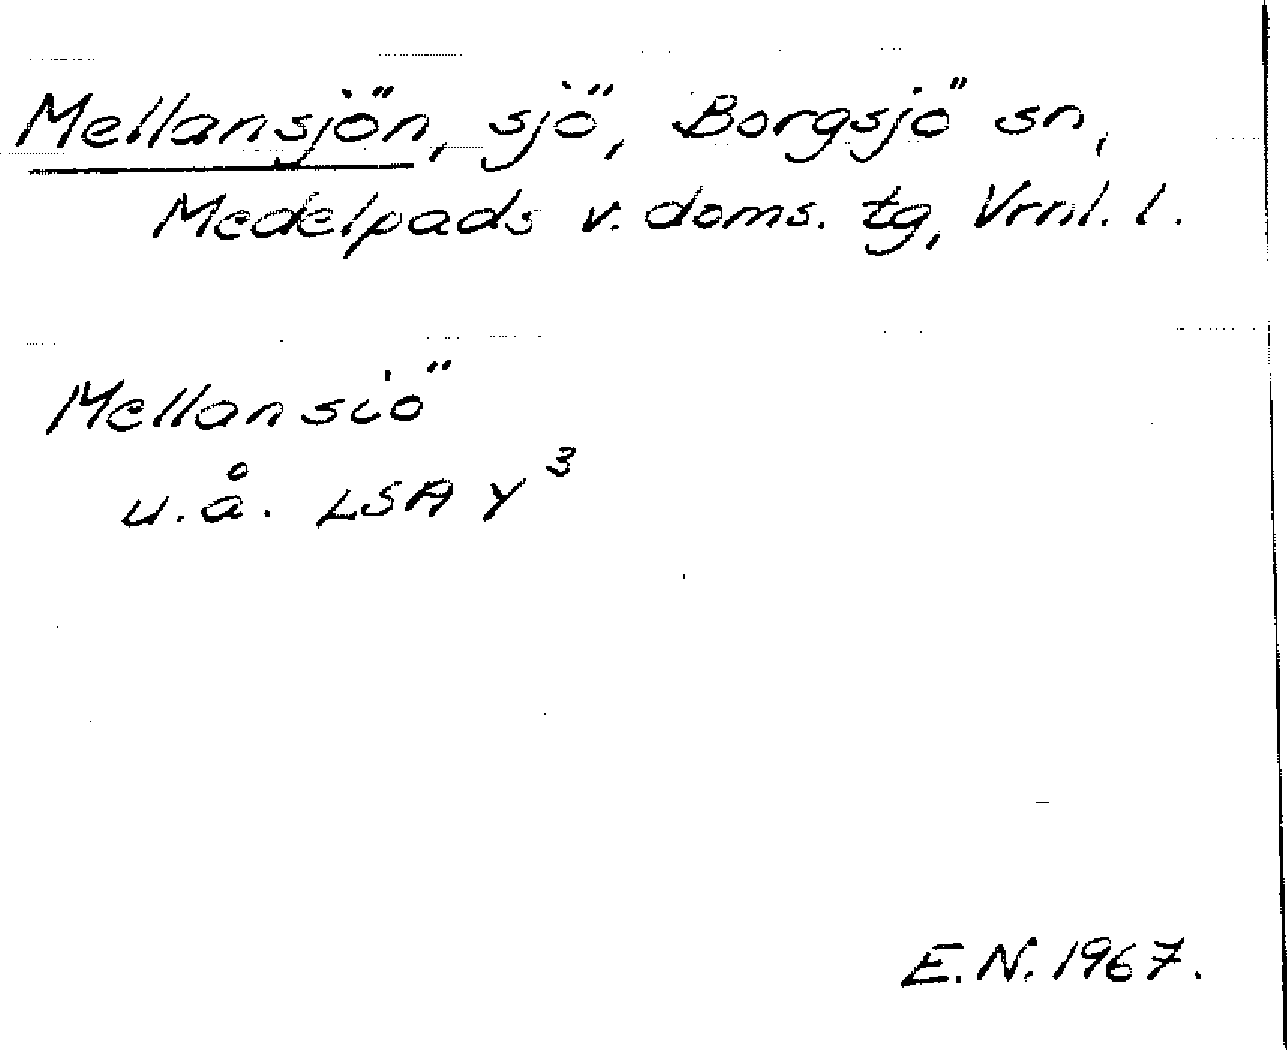 Mellansjön, sjö, Borgsjö sn,
Medelpads v. doms. tg, Vrnl. l.
Mellansiö
u.å. LSA Y³
E.N. 1967.